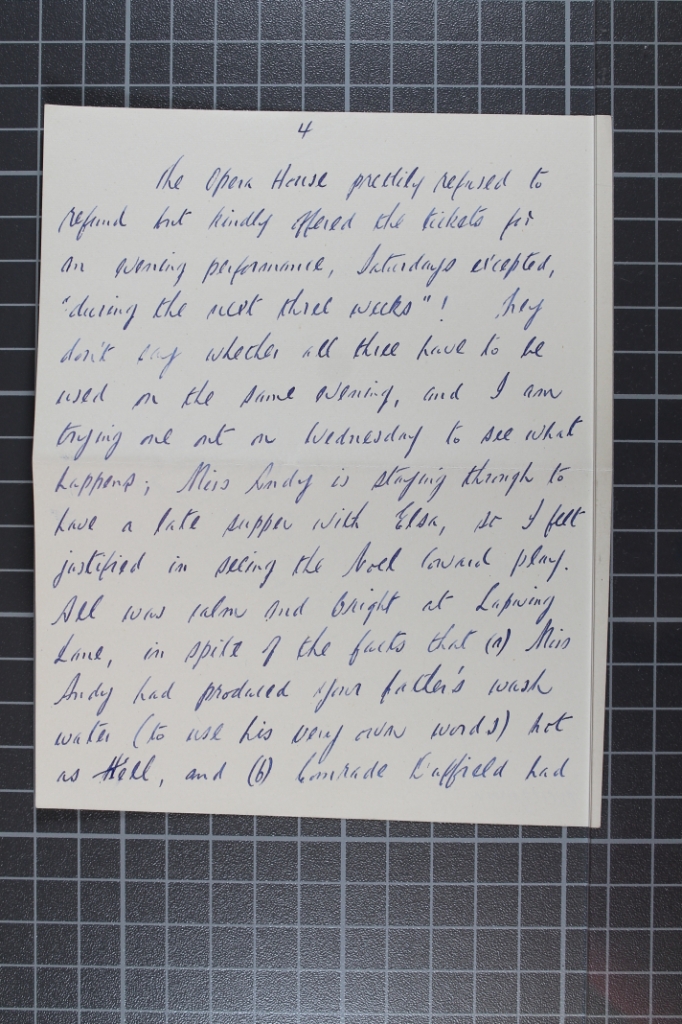 4
The Opera House prettily refused to
refund but kindly offered the tickets for
an evening performance, Saturdays excepted,
"during the next three weeks"! They
don't say whether all three have to be
used on the same evening, and I am
trying one out on Wednesday to see what
happens; Miss Andy is staying through to
have a late supper with Elsa, so I felt
justified in seeing the Noel Coward play.
All was calm and bright at Lapwing
Lane, in spite of the facts that (a) Miss
Andy had produced your father's wash
water (to use his very own words) hot
as Hell, and (b) Comrade Duffield had